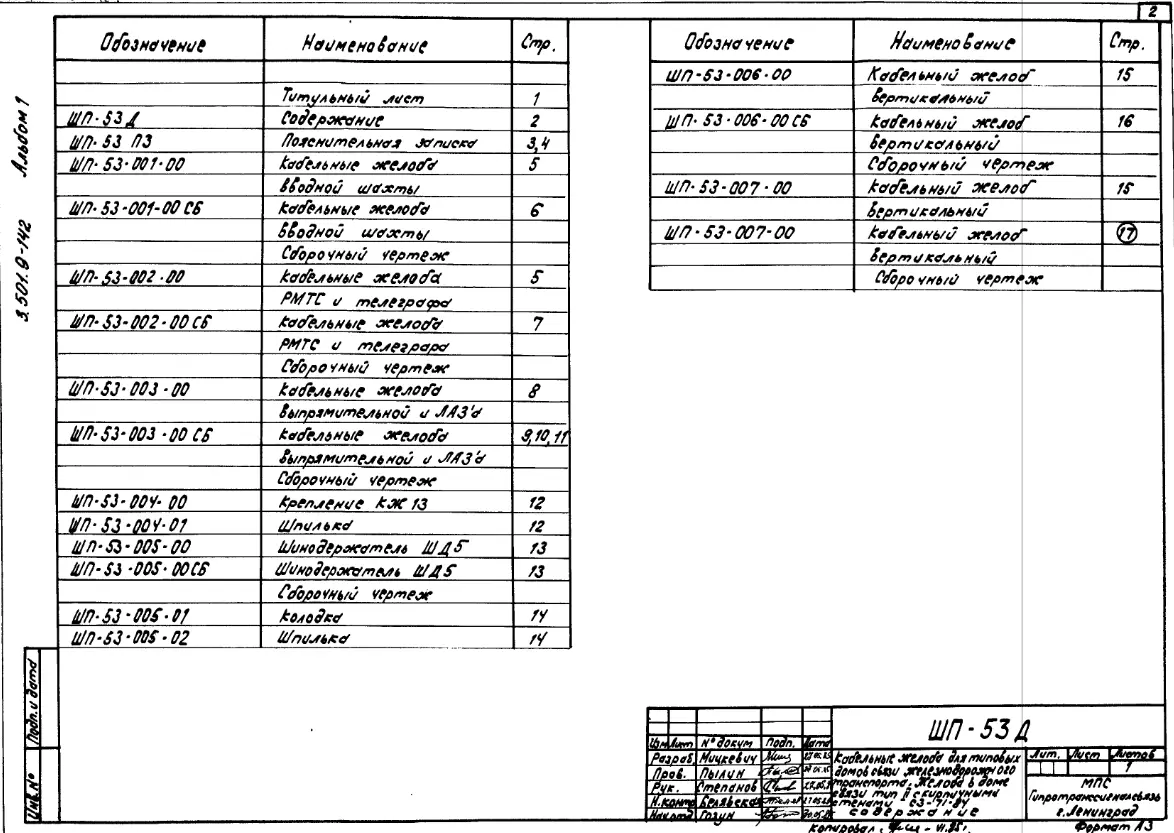 2
Обозначение Наименование Стр.
Титульный лист 1
ШП-53 Д Содержание 2
ШП-53 ПЗ Пояснительная записка 3,4
ШП-53-001-00 Кабельные желоба 5
вводной шахты
ШП-53-001-00 СБ Кабельные желоба 6
вводной шахты
Сборочный чертеж
ШП-53-002-00 Кабельные желоба 5
РМТС и телеграфа
ШП-53-002-00 СБ Кабельные желоба 7
РМТС и телеграра
Сборочный чертеж
ШП-53-003-00 Кабельные желоба 8
выпрямительной и ЛАЗ'а
ШП-53-003-00 СБ Кабельные желоба 9,10,11
выпрямительной и ЛАЗ'а
Сборочный чертеж
ШП-53-004-00 Крепление КЖ 13 12
ШП-53-004-01 Шпилька 12
ШП-53-005-00 Шинодержатель ШД5 13
ШП-53-005-00СБ Шинодержатель ШД5 13
Сборочный чертеж
ШП-53-005-01 Колодка 14
ШП-53-005-02 Шпилька 14
Обозначение Наименование Стр.
ШП-53-006-00 Кабельный желоб 15
вертикальный
ШП-53-006-00 СБ Кабельный желоб 16
вертикальный
Сборочный чертеж
ШП-53-007-00 Кабельный желоб 15
вертикальный
ШП-53-007-00 Кабельный желоб 17
вертикальный
Сборочный чертеж
3.501.9-142 Альбом 1
Подп. и дата
Инв. №
ШП-53 Д
Изм. Лист № докум Подп. Дата
Разраб. Мицкевич
Пров. Пылин
Рук. Степанов
Н.контр Белявская
Нач.отд Гозун
Кабельные желоба для типовых
домов связи железнодорожного
транспорта. Желоба в доме
связи тип II с кирпичными
стенами СЗ-71-84
Содержание
Лит. Лист Листов
1
МПС
Гипротранссигналсвязь
г. Ленинград
Копировал: VI.85г.
Формат А3